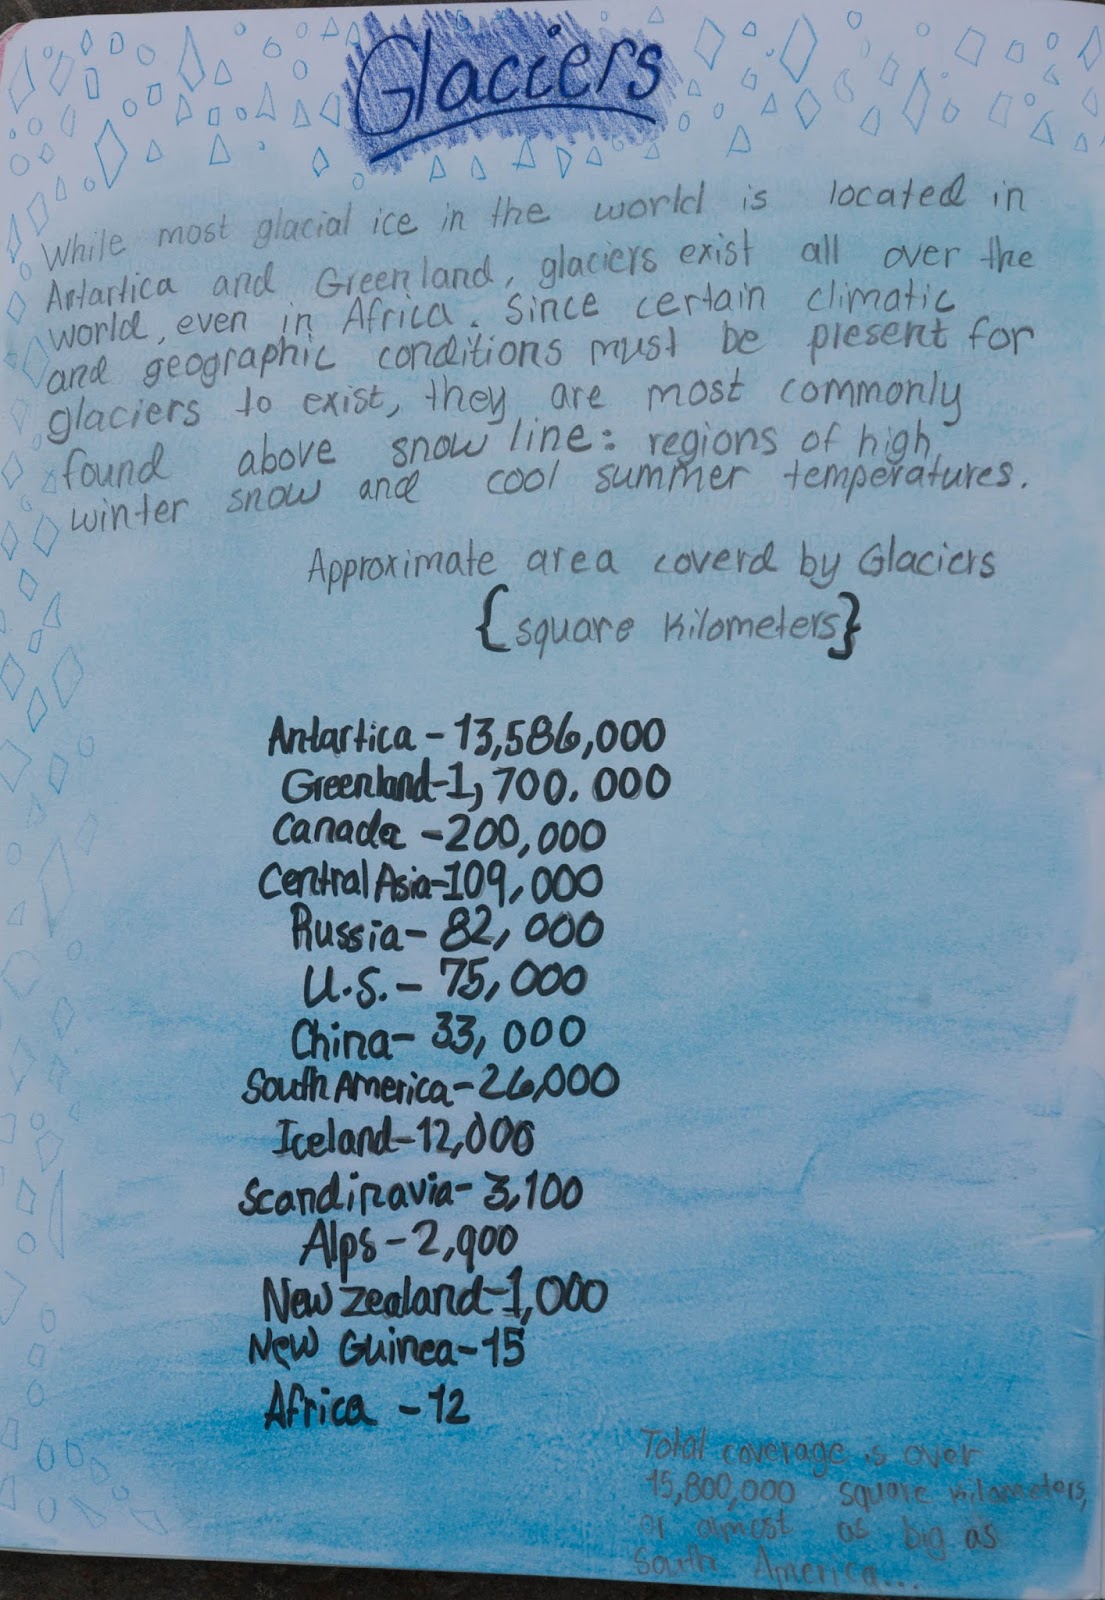 Glaciers
While most glacial ice in the world is located in
Antartica and Greenland, glaciers exist all over the
world, even in Africa. Since certain climatic
and geographic conditions must be present for
glaciers to exist, they are most commonly
found above snow line: regions of high
winter snow and cool summer temperatures.
Approximate area coverd by Glaciers
{square kilometers}
Antartica - 13,586,000
Greenland-1,700.000
Canada - 200,000
Central Asia-109,000
Russia- 82,000
U.S. - 75,000
China- 33,000
South America-26,000
Iceland-12,000
Scandinavia- 3,100
Alps - 2,900
New Zealand-1,000
New Guinea-15
Africa - 12
Total coverage is over
15,800,000 square kilometers,
or almost as big as
South America...